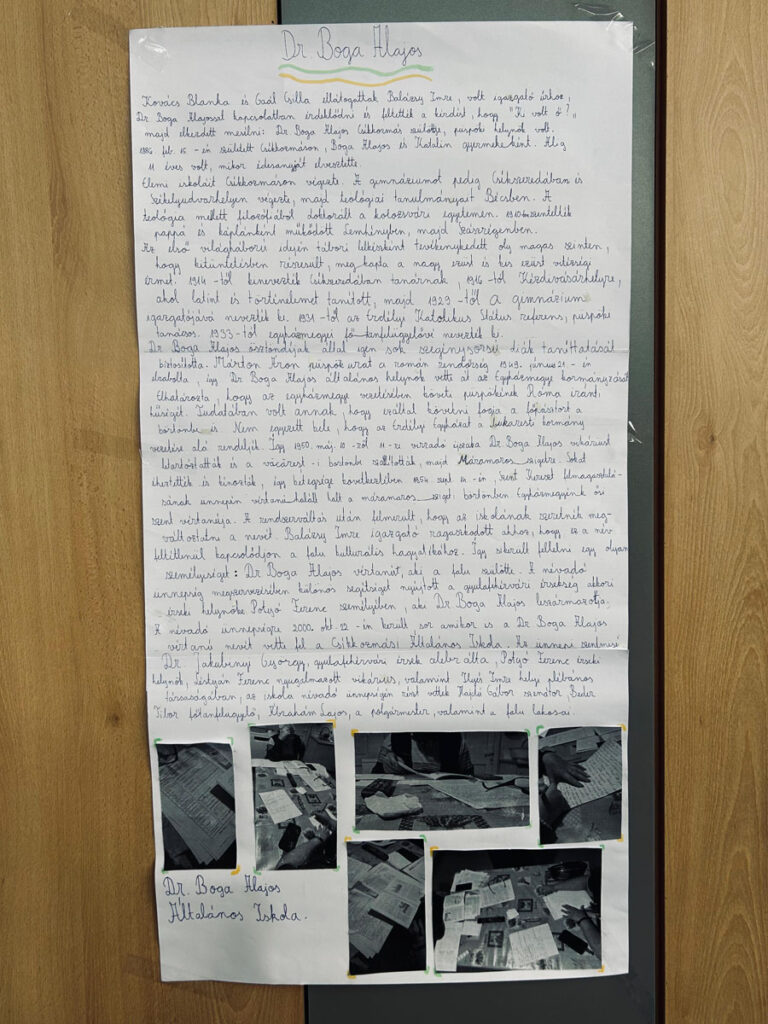 Dr. Boga Alajos
Kovács Blanka és Gaál Csilla ellátogattak Balázsy Imre, volt igazgató úrhoz,
Dr Boga Alajossal kapcsolatban érdeklődni és feltették a kérdést, hogy "Ki volt ő?"
majd elkezdett mesélni: Dr Boga Alajos Csíkkozmás szülötte, püspöki helynök volt.
1886 feb. 18 -án született Csíkkozmáson, Boga Alajos és Katalin gyermekeként. Alig
11 éves volt, mikor édesanyját elvesztette.
Elemi iskoláit Csíkkozmáson végezte. A gimnáziumot pedig Csíkszeredában és
Székelyudvarhelyen végezte, majd teológiai tanulmányait Bécsben. A
teológia mellett filozófiából doktorált a kolozsvári egyetemen. szentelték
pappá és káplánként működött Lemhényben, majd Szászrégenben.
Az első világháború idején tábori lelkészként tevékenykedett oly magas szinten,
hogy kitüntetésben részesült, megkapta a nagy ezüst és kis ezüst vitézségi
érmet. 1914 -től kinevezték Csíkszeredában tanárnak, 1916-tól Kézdivásárhelyre,
ahol latint és történelmet tanított, majd 1929 -től a gimnázium
igazgatójává nevezték ki. 1931 -től az Erdélyi Katolikus Státus referens, püspöki
tanácsos. 1933-tól egyházmegyei fő tanfelügyelővé nevezték ki.
Dr Boga Alajos ösztöndíjak által igen sok szegénysorsú diák taníttatását
biztosította. Márton Áron püspökurat a román rendőrség 1949. június 21 - én
elrabolta, így Dr Boga Alajos általános helynök vette át az Egyházmegye kormányzását
Elhatározta, hogy az egyházmegye vezetésében követi püspökének Róma iránti
hűségét. Tudatában volt annak, hogy ezáltal követni fogja a főpásztort a
börtönbe is. Nem egyezett bele, hogy az Erdélyi Egyházat a bukaresti kormány
vezetése alá rendeljék. Így 1950. máj. 10 -ről 11 -re virradó éjszaka Dr Boga Alajos vikáriust
letartóztatták és a văcărest -i börtönbe szállították, majd Máramaros szigetre. Sokat
éheztették és kínozták, így betegsége következtében 1954. szept 14 -én, Szent Kereszt felmagasztalá-
sának ünnepén vértanú halált halt a máramaros sziget börtönben Egyházmegyénk ősi
szent vértanúja. A rendszerváltás után felmerült, hogy az iskolának szeretnék meg-
változtatni a nevét. Balázsy Imre igazgató ragaszkodott ahhoz, hogy ez a név
feltétlenül kapcsolódjon a falu kulturális hagyatékához. Így sikerült fellelni egy olyan
személyiséget: Dr Boga Alajos vértanút, aki a falu szülötte. A névadó
ünnepség megszervezésében különös segítséget nyújtott a gyulafehérvári érsekség akkori
érseki helynöke Potyó Ferenc személyében, aki Dr Boga Alajos leszármazottja.
A névadó ünnepségre 2000. okt. 22 -én került sor amikor is a Dr Boga Alajos
vértanú nevét vette fel a Csíkkozmási Általános Iskola. Az ünnepi szentmisét
Dr. Jakubinyi György, gyulafehérvári érsek celebrálta, Potyó Ferenc érseki
helynök, Lestyán Ferenc nyugalmazott vikárius, valamint Ilyés Imre helyi plébános
társaságában, az iskola névadó ünnepségén részt vettek Hajdú Gábor szenátor, Beder
Tibor főtanfelügyelő, Ábrahám Lajos, a polgármester, valamint a falu lakosai
Dr. Boga Alajos
Általános Iskola.